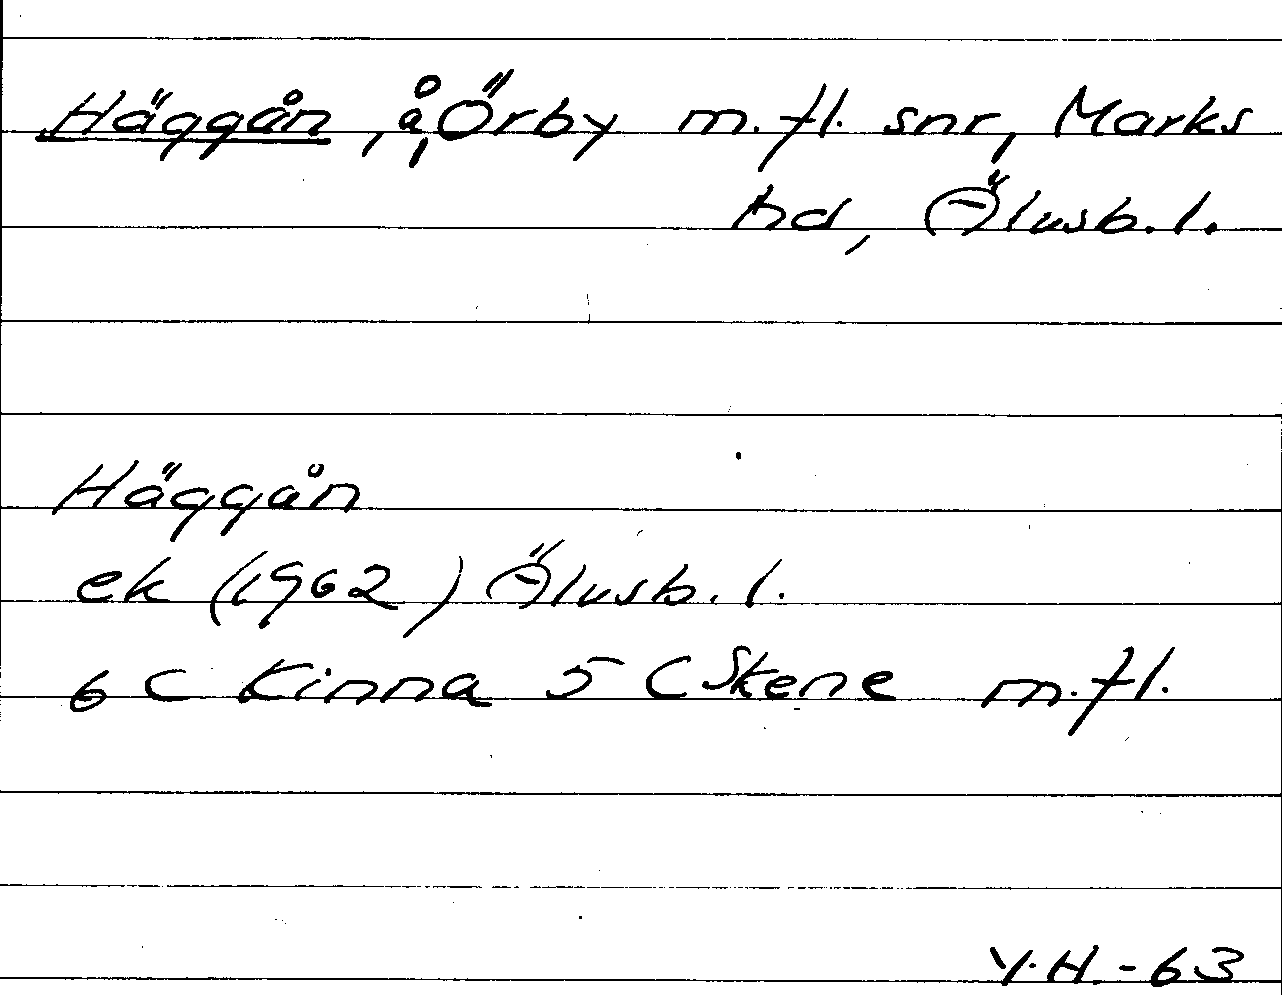 Häggån, å, Örby m.fl. snr, Marks
hd, Älvsb.l.
Häggån
ek (1962) Älvsb.l.
6 C Kinna 5 C Skene m.fl.
Y.H.-63